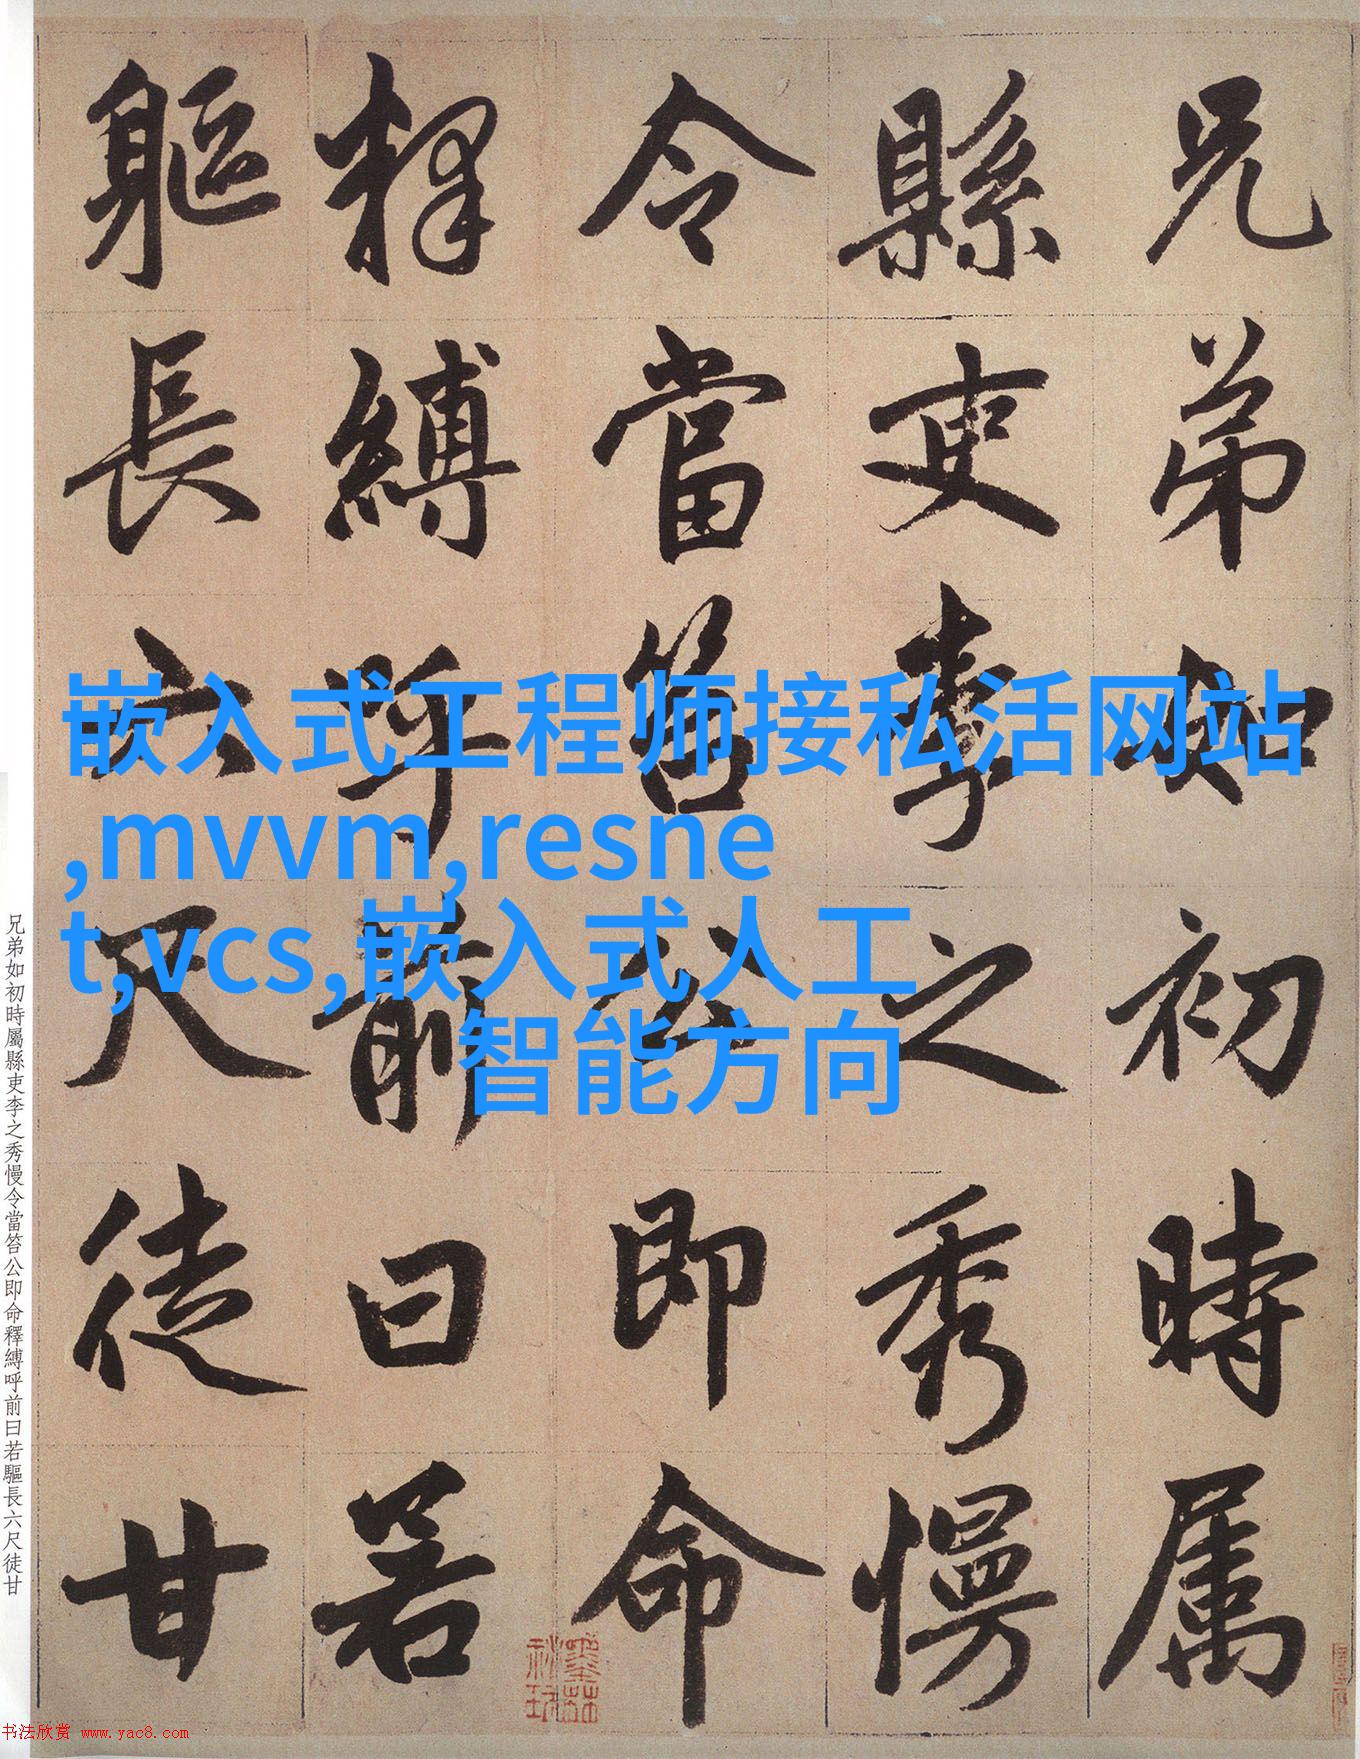 兄弟如初時属
縣吏李之秀慢
令當笞公即命
釋縛呼前曰若
軀長六尺徒甘
嵌入式工程师接私活网站
,mvvm,resne
t,vcs,嵌入式人工
智能方向
兄弟如初時屬縣吏李之秀慢令當笞公即命釋縛呼前曰若驅長六尺徒甘
书法欣赏 www.yac8.com